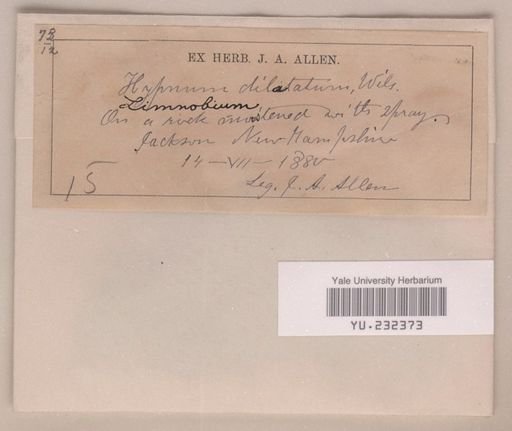 73/12
EX HERB. J. A. ALLEN.
Hypnum dilatatum, Wils.
Limnobium
On a rock moistened with spray.
Jackson New Hampshire
14-VII-1880
Leg. J. A. Allen
15
Yale University Herbarium
YU.232373